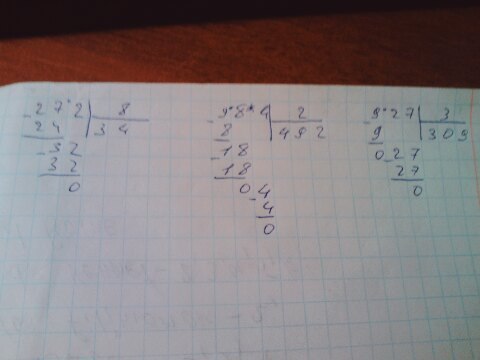 272 | 8
24 | 34
- 32
32
0
984 | 2
8 | 492
- 18
18
04
- 4
4
0
927 | 3
9 | 309
027
- 27
0